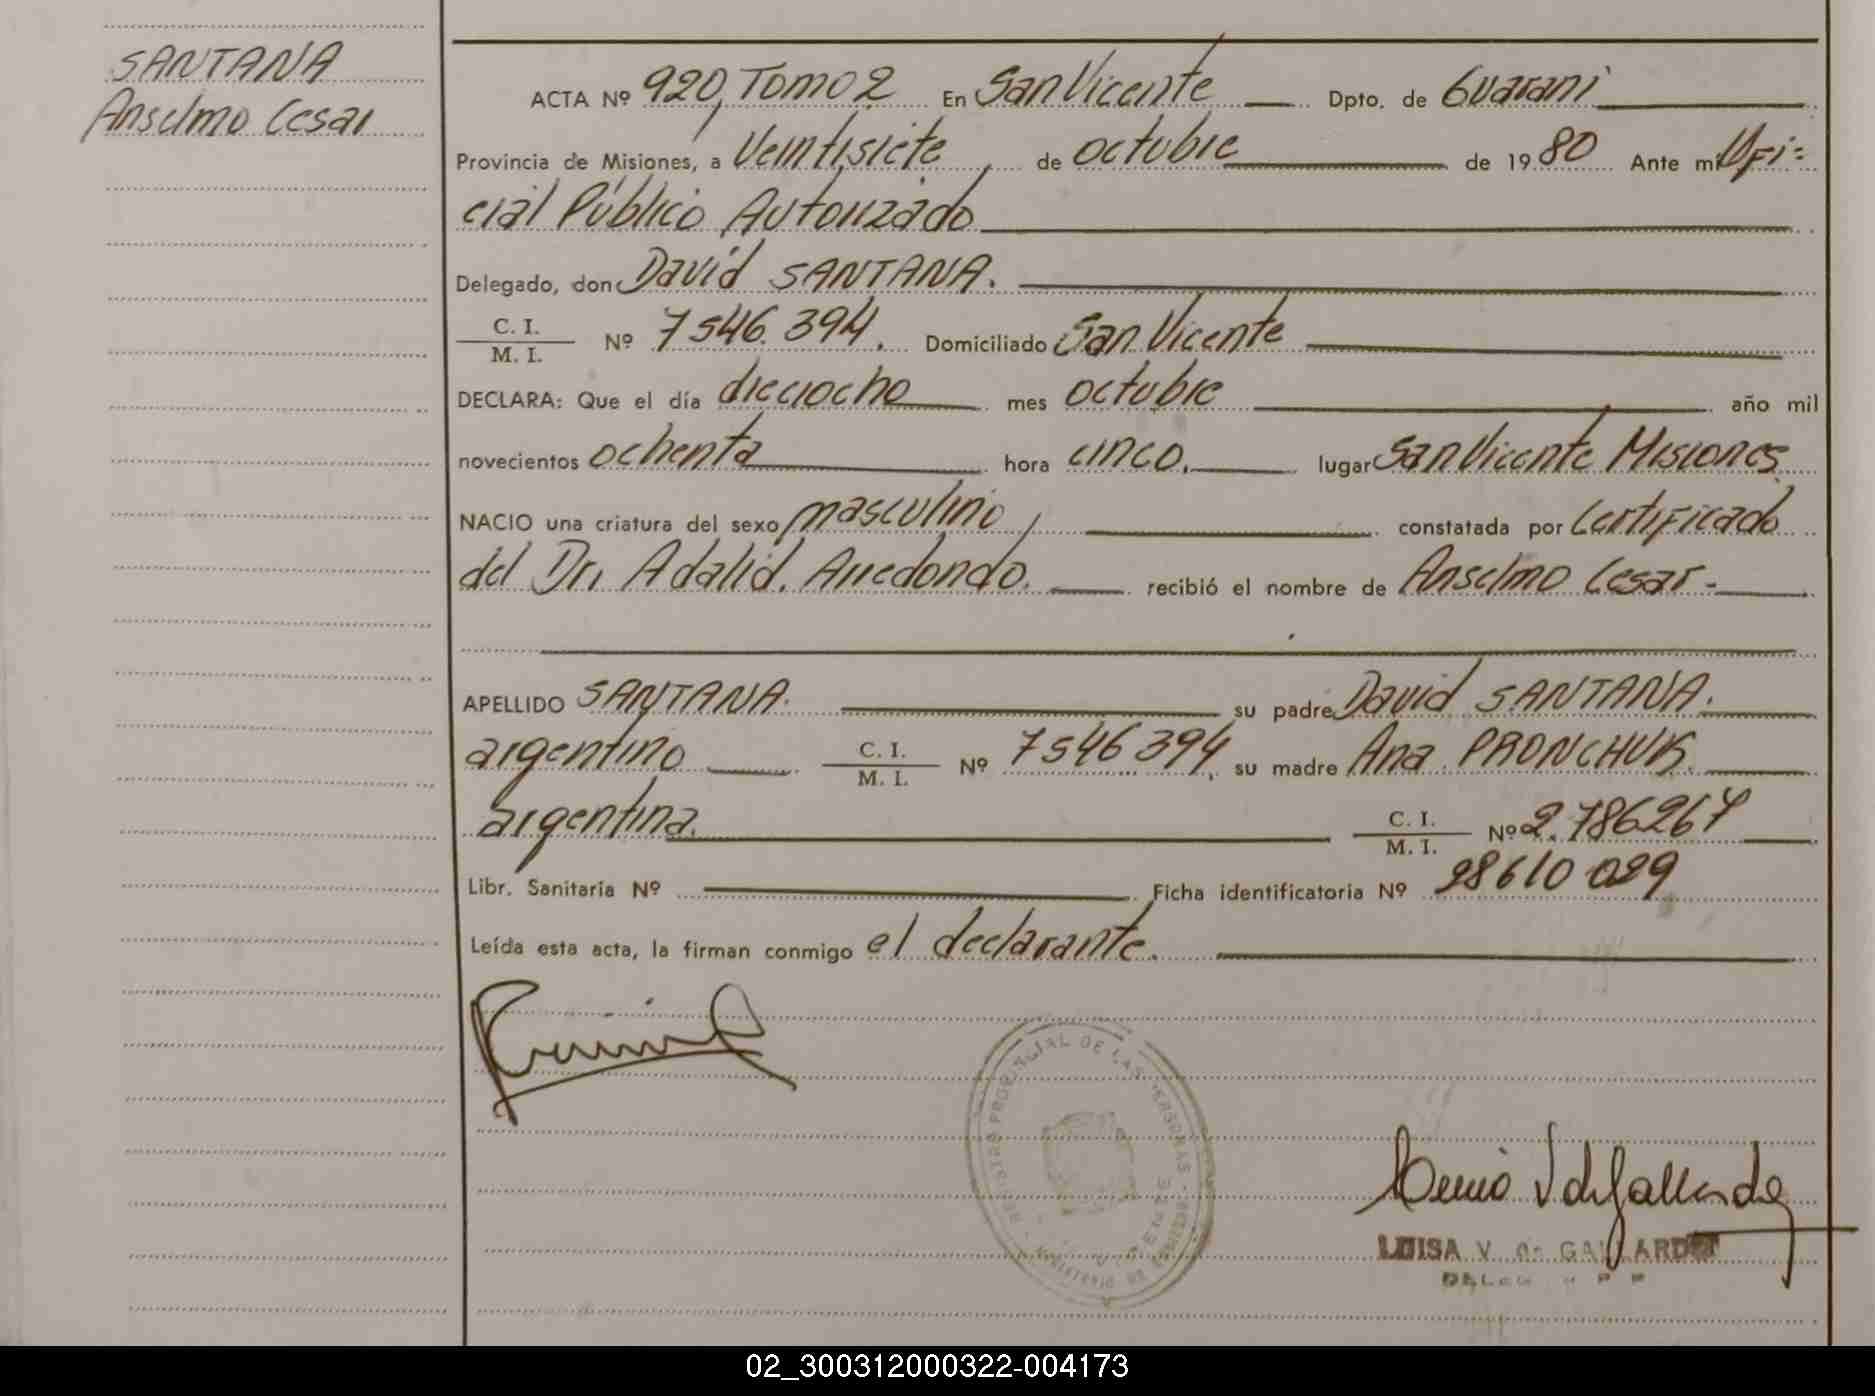 SANTANA
Anselmo Cesar
ACTA Nº 920, Tomo 2 En San Vicente Dpto. de Guarani
Provincia de Misiones, a Veintisiete de octubre de 1980 Ante mi Ofi=
cial Público Autorizado
Delegado, don David SANTANA.
C. I.
M. I. Nº 7546.394. Domiciliado San Vicente
DECLARA: Que el día dieciocho mes octubre año mil
novecientos ochenta hora cinco. lugar San Vicente Misiones
NACIO una criatura del sexo masculino, constatada por Certificado
del Dr. Adalid. Arredondo. recibió el nombre de Anselmo Cesar-
APELLIDO SANTANA. su padre David SANTANA.
argentino C. I.
M. I. Nº 7546394, su madre Ana PRONCHUK.
argentina. C. I.
M. I. Nº 2.786267
Libr. Sanitaria Nº Ficha identificatoria Nº 28610029
Leída esta acta, la firman conmigo el declarante.
REGISTRO PROVINCIAL DE LAS PERSONAS
LUISA V. de GALLARDO
02_300312000322-004173